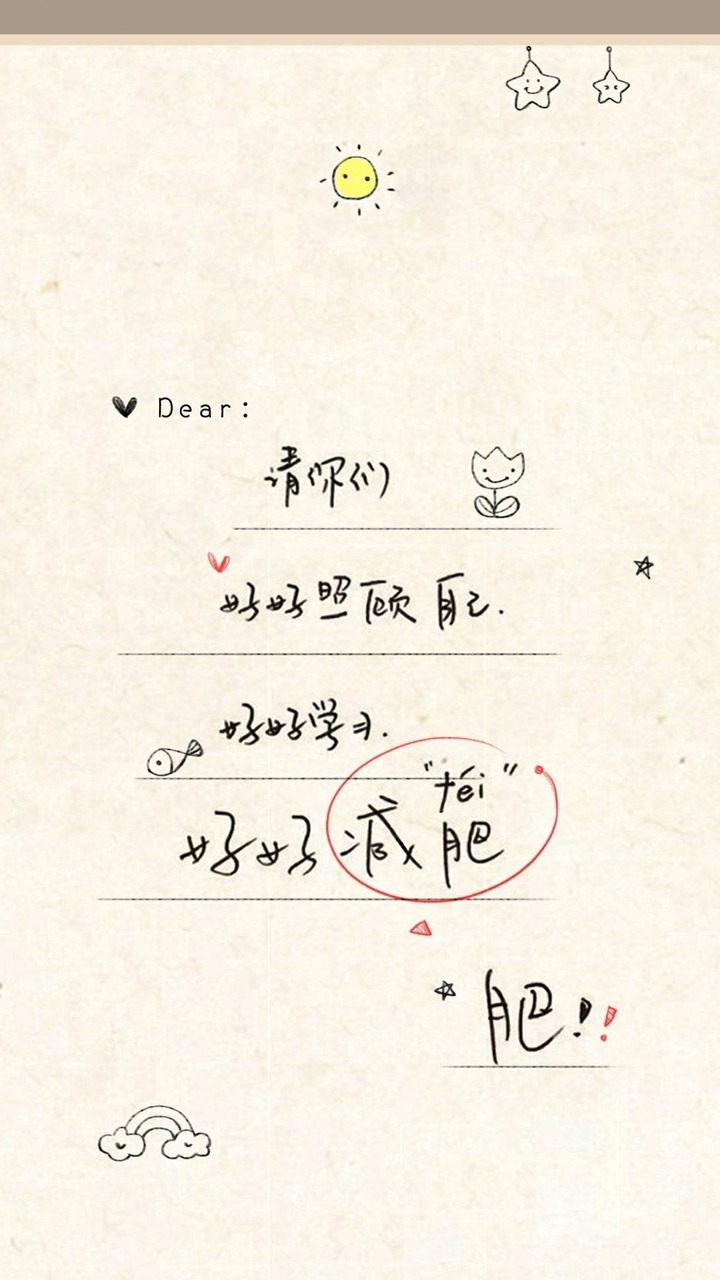 Dear:
请你们
好好照顾自己.
好好学习.
"féi"
好好减肥
肥!!